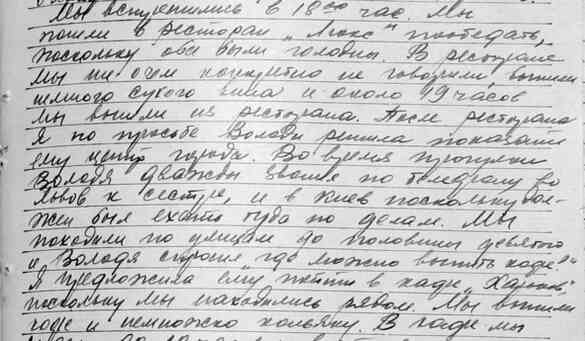 Мы встретились в 18⁰⁰ час. Мы
пошли в ресторан „Люкс" пообедать,
поскольку оба были голодны. В ресторане
мы ни о чем конкретно не говорили, выпили
немного сухого вина и около 19 часов
мы вышли из ресторана. После ресторана
я по просьбе Володи решила показать
ему центр города. Во время прогулки
Володя дважды звонил по телефону во
Львов к сестре, и в Киев поскольку дол-
жен был ехать туда по делам. Мы
походили по улицам до половины девятого
и Володя спросил „где можно выпить кофе?"
Я предложила ему пойти в кафе „Харьков"
поскольку мы находились рядом. Мы выпили
кофе и немножко коньяку. В кафе мы